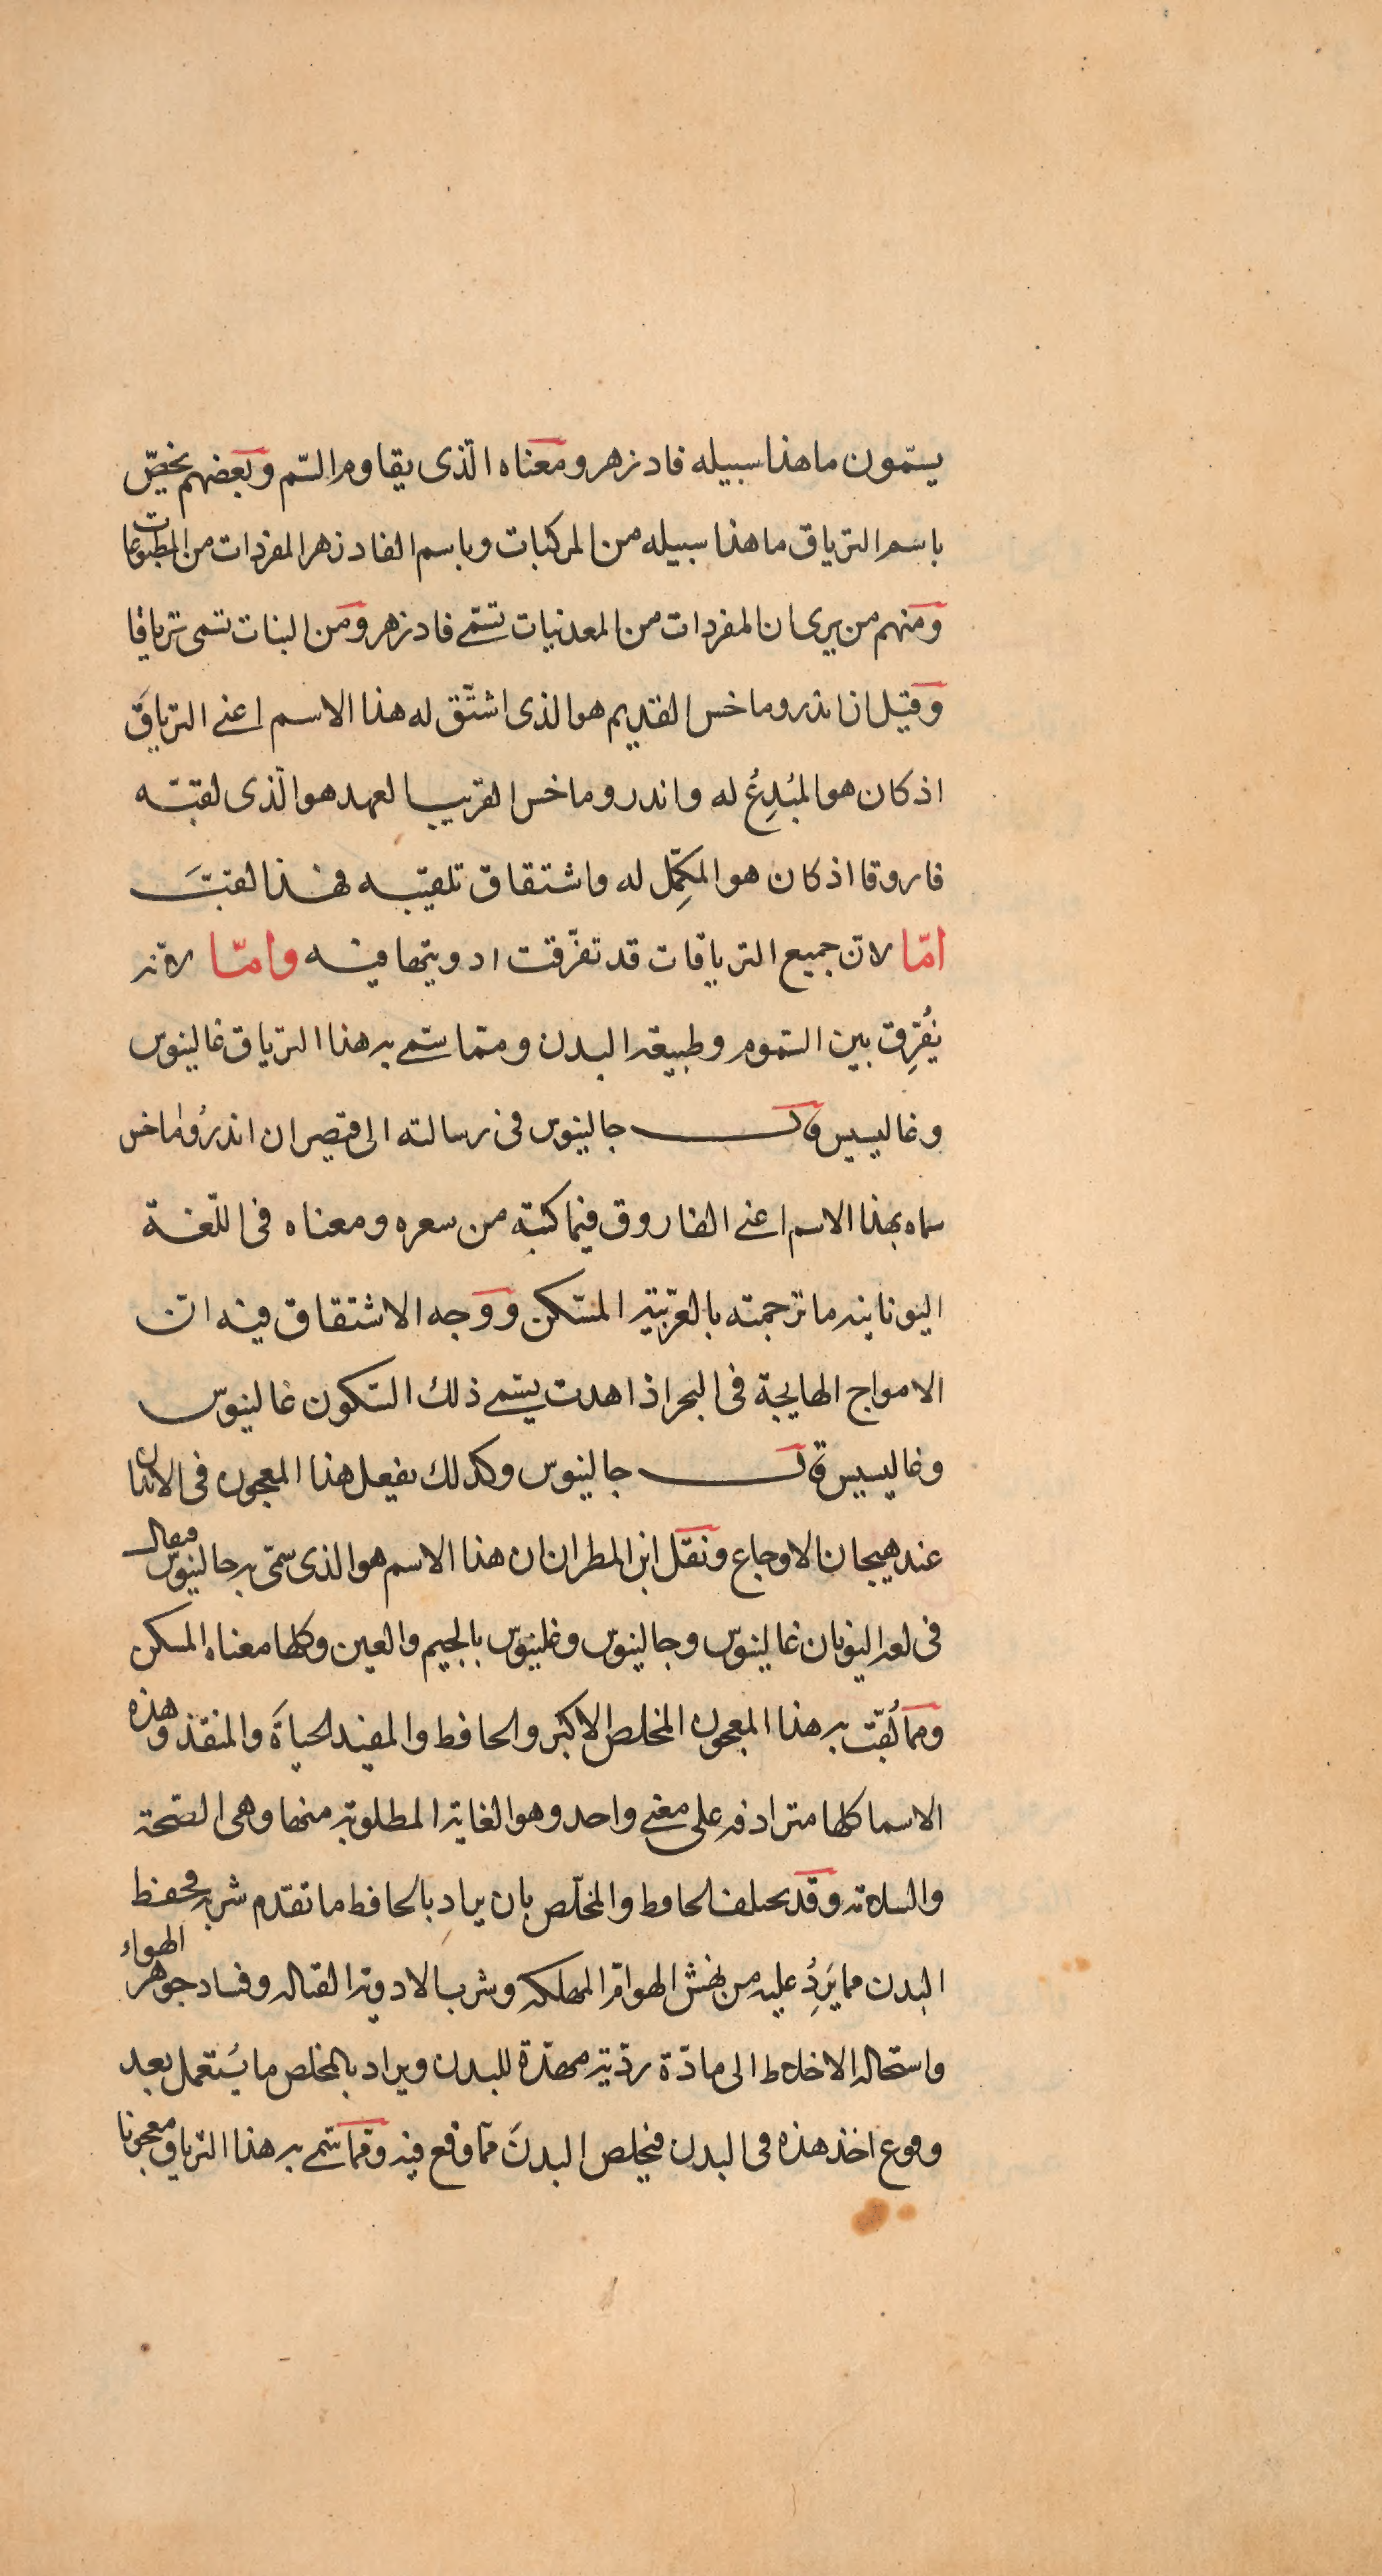 يسمّون ما هذا سبيله فادزهر ومعناه الّذى يقاوم السّم وبعضهم يخصّ
باسم الترياق ما هذا سبيله من المركبات وباسم الفادزهر المفردات من المطبوعات
ومنهم من يرى ان المفردات من المعدنيات تسمّى فادزهر ومن النبات تسمى ترياقا
وقيل ان اندروماخس القديم هو الذى اشتّق له هذا الاسم اعنى الترياق
اذ كان هو المُبدِعُ له واندروماخس القريب العهد هو الّذى لقبّه
فاروقا اذ كان هو المكمِّل له واشتقاق تلقيبه بهذا لقبَ
امّا لانّ جميع الترياقات قد تفرّقت ادويتها فيه وامّا لانّه
يُفرِق بين السّموم وطبيعة البدن وممّا سمّى به هذا الترياق غالينوس
وغاليسيس قال جالينوس فى رسالته الى قيصر ان اندرُوماخس
سماه بهذا الاسم اعنى الفاروق فيما كتبه من سعره ومعناه فى اللّغة
اليونانيه ما ترجمته بالعربّية المسّكن ووجه الاشتقاق فيه انّ
الامواج الهايجة فى البحر اذا هدت يسّمى ذلك السّكون غالينوسّ
وغاليسيس قال جالينوس وكذلك يفعل هذا المعجون فى الابدان
عند هيجان الاوجاع ونقل ابن المطران ان هذا الاسم هو الذى سمّى به جالينوس فيقال
فى لغه اليونان غالينوسّ وجالينوس وغلينوسّ بالجيم والغين وكلها معناه المسكن
ومما لُقّبت به هذا المعجون المخلص الاكبر والحافظ والمفيد الحياةَ والمنقذ وهذه
الاسما كلها مترادفه على معنى واحد وهو الغاية المطلوبة منها وهى الصّحة
والسلامه وقد يختلف الحافظ والمخلّص بان يراد بالحافظ ما تقدّم شربه فحفظ
البدن مما يَرِدُ عليه من نهش الهوامّ المهلكه وشرب الادوية القتاله وفساد جوهر الهواء
واستحاله الاخلاط الى مادّة رديّة مهدّدة للبدن ويراد بالمخلص ما يُستعمل بعد
وقوع اخذ هذه فى البدن فيخلص البدنَ ممّا وقع فيه وممّا سمّى به هذا الترياق معجونا